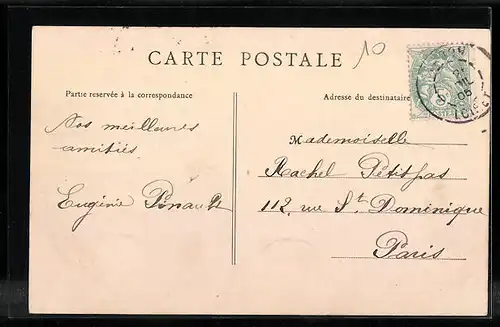 CARTE POSTALE
10
Partie reservée à la correspondance
Adresse du destinataire
Nos meilleures
amitiés
Eugénie
Mademoiselle
Rachel Petitpas
112, rue St. Dominique
Paris